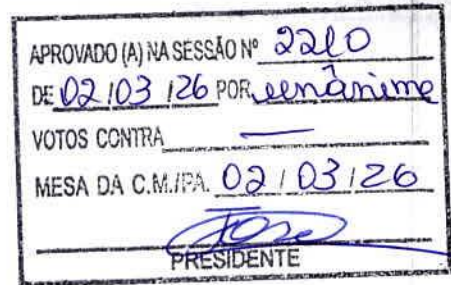 APROVADO (A) NA SESSÃO Nº 2210
DE 02/03/26 POR unânime
VOTOS CONTRA —
MESA DA C.M./PA. 02/03/26
PRESIDENTE